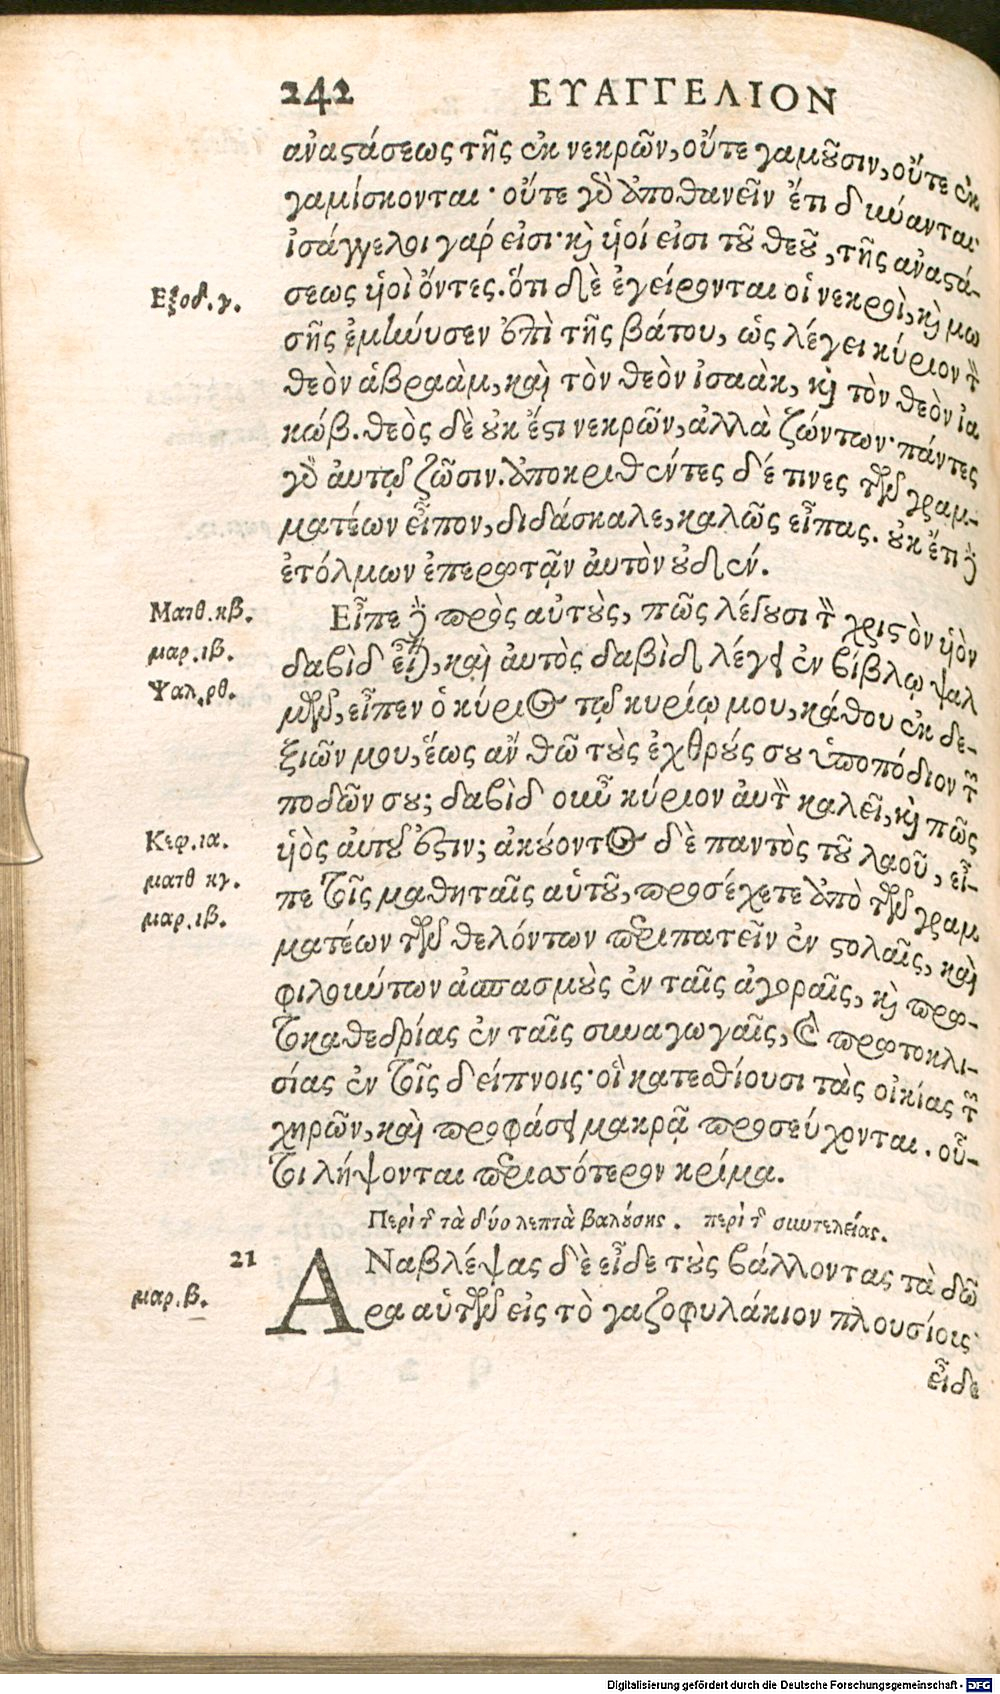 242 ΕΥΑΓΓΕΛΙΟΝ
ἀναστάσεως τῆς ἐκ νεκρῶν, οὔτε γαμοῦσιν, οὔτε ἐκ
γαμίσκονται· οὔτε γὰρ ἀποθανεῖν ἔτι δύνανται·
ἰσάγγελοι γάρ εἰσι· καὶ ὑοί εἰσι τοῦ θεοῦ, τῆς ἀναστά-
Εξοδ. γ.
σεως ὑοὶ ὄντες. ὅτι δὲ ἐγείρονται οἱ νεκροὶ, καὶ μω
σῆς ἐμήνυσεν ἐπὶ τῆς βάτου, ὡς λέγει κύριον τὸν
θεὸν ἀβραὰμ, καὶ τὸν θεὸν ἰσαὰκ, καὶ τὸν θεὸν ἰα
κώβ. θεὸς δὲ οὐκ ἔστι νεκρῶν, ἀλλὰ ζώντων· πάντες
γὰρ ἀυτῷ ζῶσιν. ἀποκριθέντες δέ τινες τῶν γραμ-
ματέων εἶπον, διδάσκαλε, καλῶς εἶπας. οὐκ ἔτι δὲ
ἐτόλμων ἐπερωτᾷν ἀυτὸν οὐδέν.
Ματθ. κβ.
Εἶπε δὲ πρὸς αὐτοὺς, πῶς λέγουσι τὸν χριστὸν ὑὸν
μαρ. ιβ.
δαβὶδ εἶναι, καὶ ἀυτὸς δαβὶδ λέγει ἐν βίβλῳ ψαλ
Ψαλ. ρθ.
μῶν, εἶπεν ὁ κύριος τῷ κυρίῳ μου, κάθου ἐκ δε-
ξιῶν μου, ἕως ἂν θῶ τοὺς ἐχθρούς σου ὑποπόδιον τῶν
ποδῶν σου; δαβὶδ οὖν κύριον ἀυτὸν καλεῖ, καὶ πῶς
Κεφ. ια.
ὑὸς ἀυτοῦ ἐστιν; ἀκούοντος δὲ παντὸς τοῦ λαοῦ, εἶ-
ματθ κγ.
πε τοῖς μαθηταῖς αὑτοῦ, προσέχετε ἀπὸ τῶν γραμ
μαρ. ιβ.
ματέων τῶν θελόντων περιπατεῖν ἐν στολαῖς, καὶ
φιλούντων ἀσπασμοὺς ἐν ταῖς ἀγοραῖς, καὶ πρω-
τοκαθεδρίας ἐν ταῖς συναγωγαῖς, καὶ πρωτοκλι-
σίας ἐν τοῖς δείπνοις· οἳ κατεσθίουσι τὰς οἰκίας τῶν
χηρῶν, καὶ προφάσει μακρᾷ προσεύχονται. οὗ-
τοι λήψονται περισσότερον κρίμα.
Περὶ τῆς τὰ δύο λεπτὰ βαλούσης. περὶ τῆς συντελείας.
21
ΑΝαβλέψας δὲ εἶδε τοὺς βάλλοντας τὰ δῶ
μαρ. β.
ρα αὑτῶν εἰς τὸ γαζοφυλάκιον πλουσίους·
εἶδε
Digitalisierung gefördert durch die Deutsche Forschungsgemeinschaft - DFG